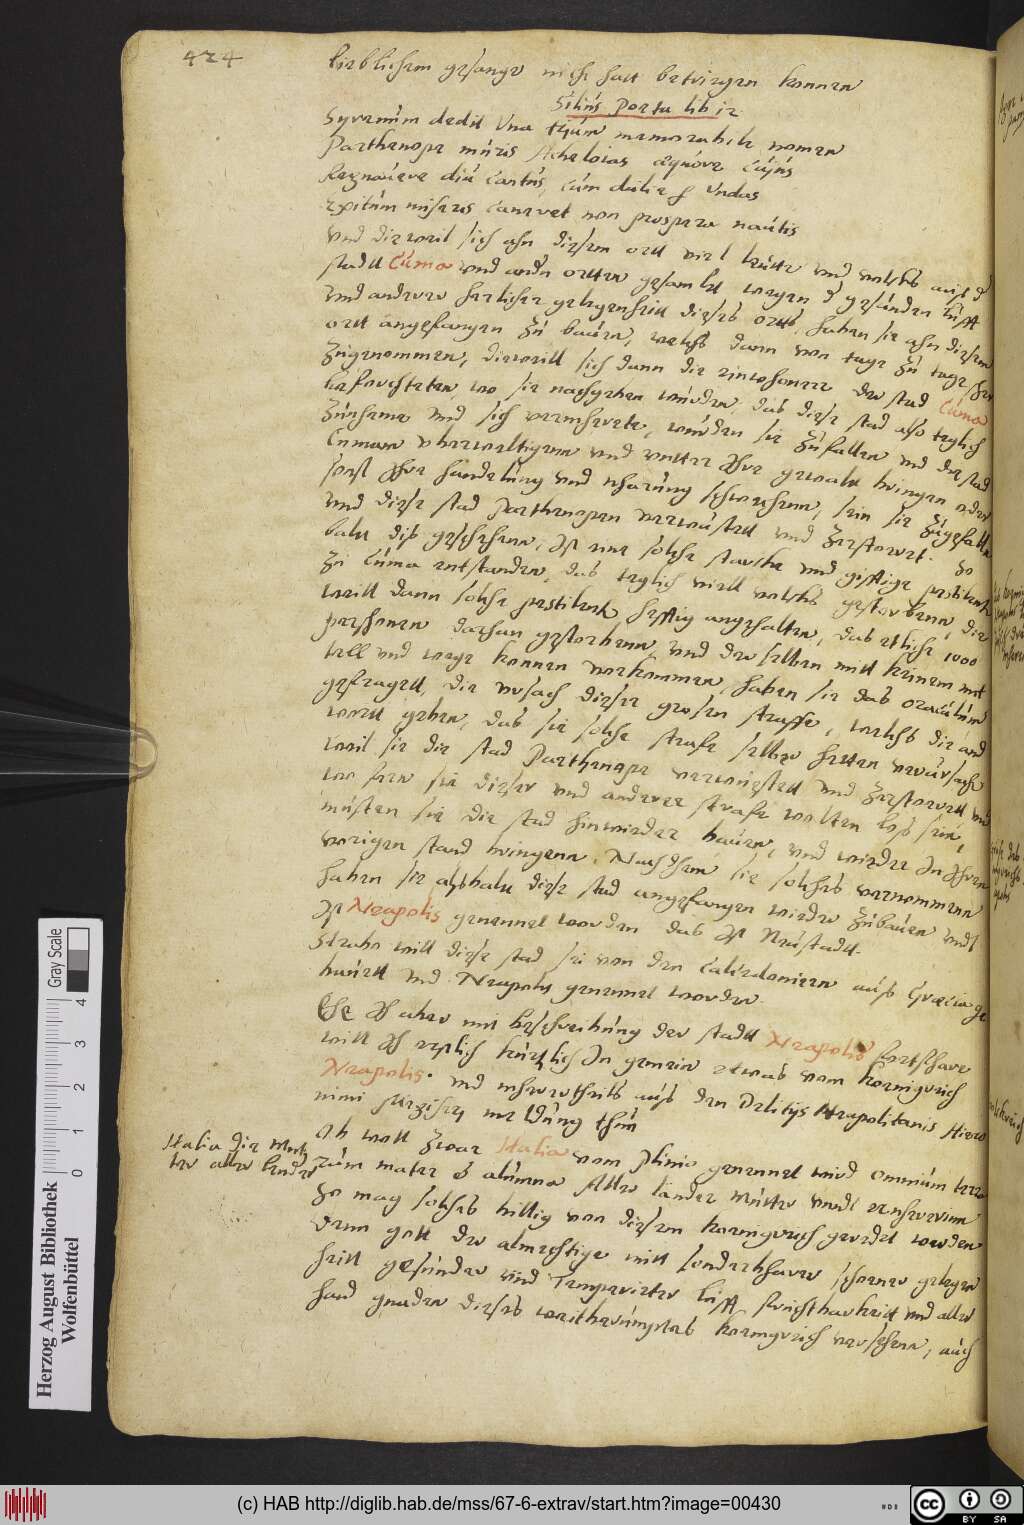 424
lieblichem gesange nicht hatt betriegen konnen
Silius Poeta lib 12
Syrenum dedit Una suum memorabile nomen
Parthenope muris Acheloias æquore cujus
Regnavere diu cantus, cum dulce per Undas
exitium miseris caneret non prospera nautis
und dieweil sich ahn diesem ortt viel leutte und volcks auß d
stadt Cuma und andn ortten gesamlet wegen d gesunden lufft
und anderer herlicher gelegenheitt dieses ortts, haben sie ahn diesem
ortt angefangen zu bauen, welchs dann von tage zu tage sehr
zugenommen, dieweill sich dann die einwohnere der stad Cuma
befurchteten, wo sie nachgeben wurden, das diese stad also teglich
zunheme und sich vermherete, wurden sie zufallen und die stad
Cuman uberweltigenn und untter Ihre gewalt bringen oder
sonst Ihre handelung und nharung schwechenn, sein sie zugefalln
und diese stad Parthenopen verwustett und zerstoeret. So
balt diß geschehenn, Ist eine solche starcke und gifftige pestilentz
zu Cuma entstanden, das teglich viell volcks gestorbenn, die
weill dann solche pestilentz hefftig angehalten, das etliche 1000
personen daran gestorbenn, und derselben mitt keinem mit
tell und wege konnen vorkommen, haben sie das oraculum
gefraget, die ursach dieser grosen straffe, welchs die and
wort geben, das sie solche strafe selber hetten verursacht
weil sie die stad Parthenope verwustett und zerstorett und
wo fern sie dieser und anderer strafe wolten loß sein,
musten sie die stad hinwieder bauen, und wieder In Ihren
vorigen stand bringenn. Nach dhem sie solches vernommenn
haben sie alsbalt diese stad angefangen wieder zubauen undt
Ist Neapolis genennet worden das Ist Neustadt.
Strabo will diese stad sei von den Calcedoniern auß Græcia ge
bauett und Neapolis genennet worden.
Ehe Ich aber mit beschreibung der stadt Neapolis fortfhare
will Ich erstlich kurtzlich In gemein etwas vom koenigreich
Neapolis. und mherertheils auß den Delitijs Neapolitanis Hiero
nimi Megiseri meldung thun
Italia die Mut
ter aller lender
Ob woll zwar Italia vom Plinio genennet wird omnium terra
rum mater & alumna Aller lander Mutter undt ernhererinn
So mag solches billig von diesem koenigreich geredet werden
denn gott der almechtige mitt sonderbharer schoener gelegen
heitt gesunder und Temperierter lufft fruchtbarkeitt und aller
hand gnaden dieses weitberumptes koenigreich versehenn, auch
Herzog August Bibliothek
Wolfenbüttel
Gray Scale
0 1 2 3 4
(c) HAB http://diglib.hab.de/mss/67-6-extrav/start.htm?image=00430
cc BY SA